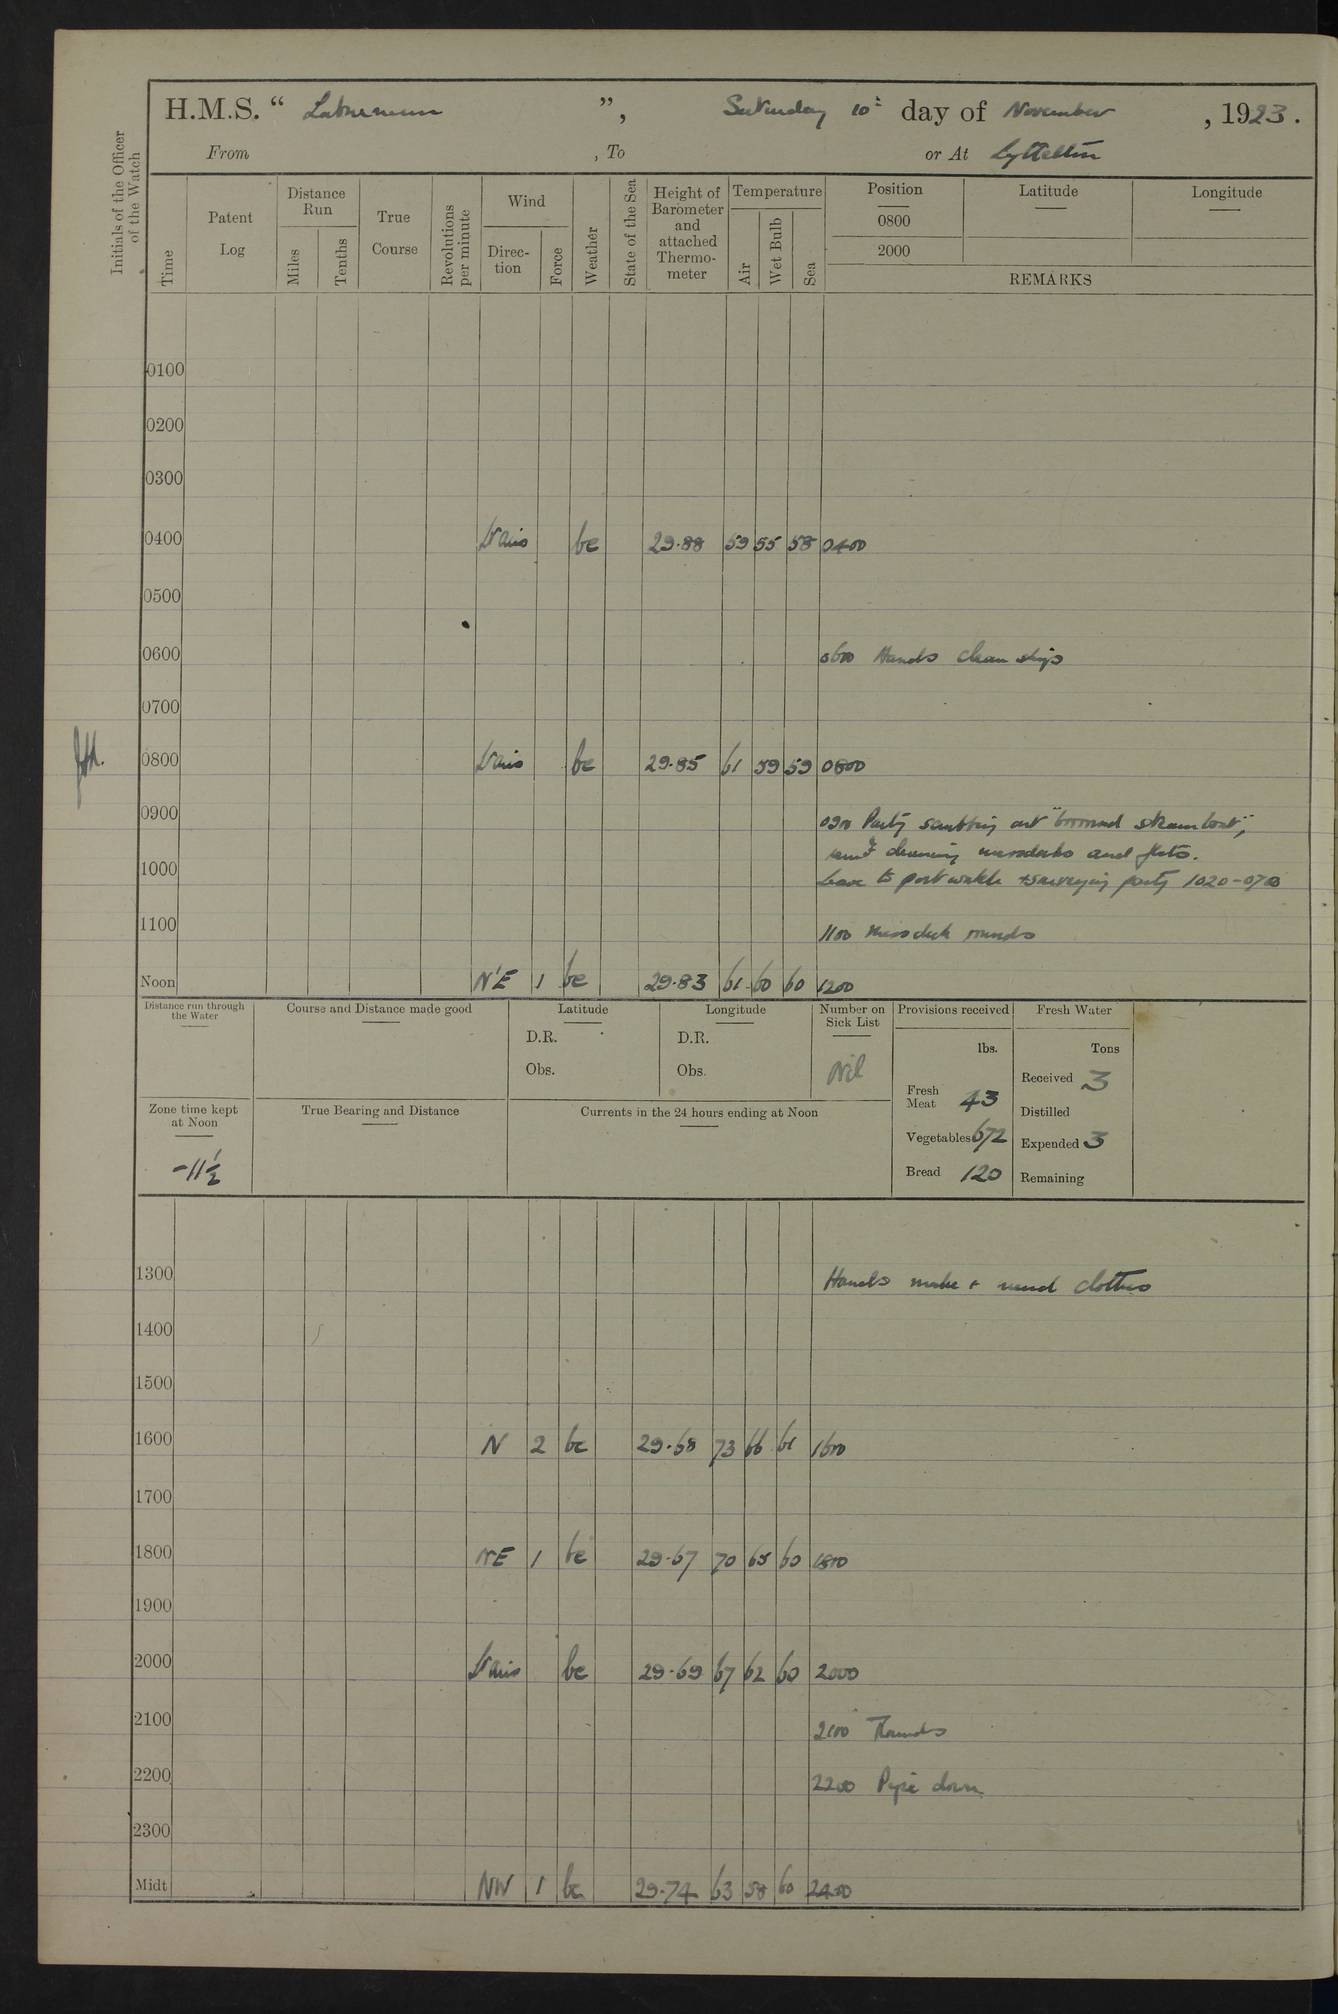 H.M.S. “ Laburnum ”, Saturday 10th day of November , 1923.
From , To or At Lyttelton
Initials of the Officer of the Watch
Time
Patent Log
Distance Run
Miles
Tenths
True Course
Revolutions per minute
Wind
Direc-tion
Force
Weather
State of the Sea
Height of Barometer and attached Thermo-meter
Temperature
Air
Wet Bulb
Sea
Position Latitude Longitude
0800
2000
REMARKS
0100
0200
0300
0400 Vars bc 29.88 59 55 58 0400
0500
0600 0600 Hands clean ship
0700
0800 Vars bc 29.85 61 59 59 0800
0900 0900 Party scrubbing out steamboat,
cleaning messdecks and flats.
1000 Leave to port watch + surveying party 1020-0700
1100 1100 Mess deck rounds
Noon N'E 1 bc 29.83 61 60 60 1200
Distance run through the Water
Course and Distance made good
Latitude
D.R.
Obs.
Longitude
D.R.
Obs.
Number on Sick List
Nil
Provisions received
lbs.
Fresh Meat 43
Vegetables 672
Bread 120
Fresh Water
Tons
Received 3
Distilled
Expended 3
Remaining
Zone time kept at Noon
-11½
True Bearing and Distance
Currents in the 24 hours ending at Noon
1300 Hands make + mend clothes
1400
1500
1600 N 2 bc 29.68 73 66 61 1600
1700
1800 NE 1 bc 29.67 70 65 60 1800
1900
2000 Vars bc 29.69 67 62 60 2000
2100 2100 Rounds
2200 2200 Pipe down
2300
Midt NW 1 bc 29.74 63 58 60 2400